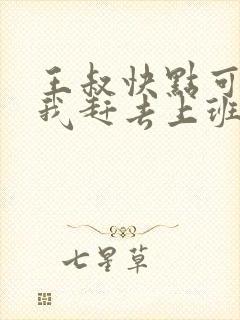 王叔快點可
我赶去上班
七星草